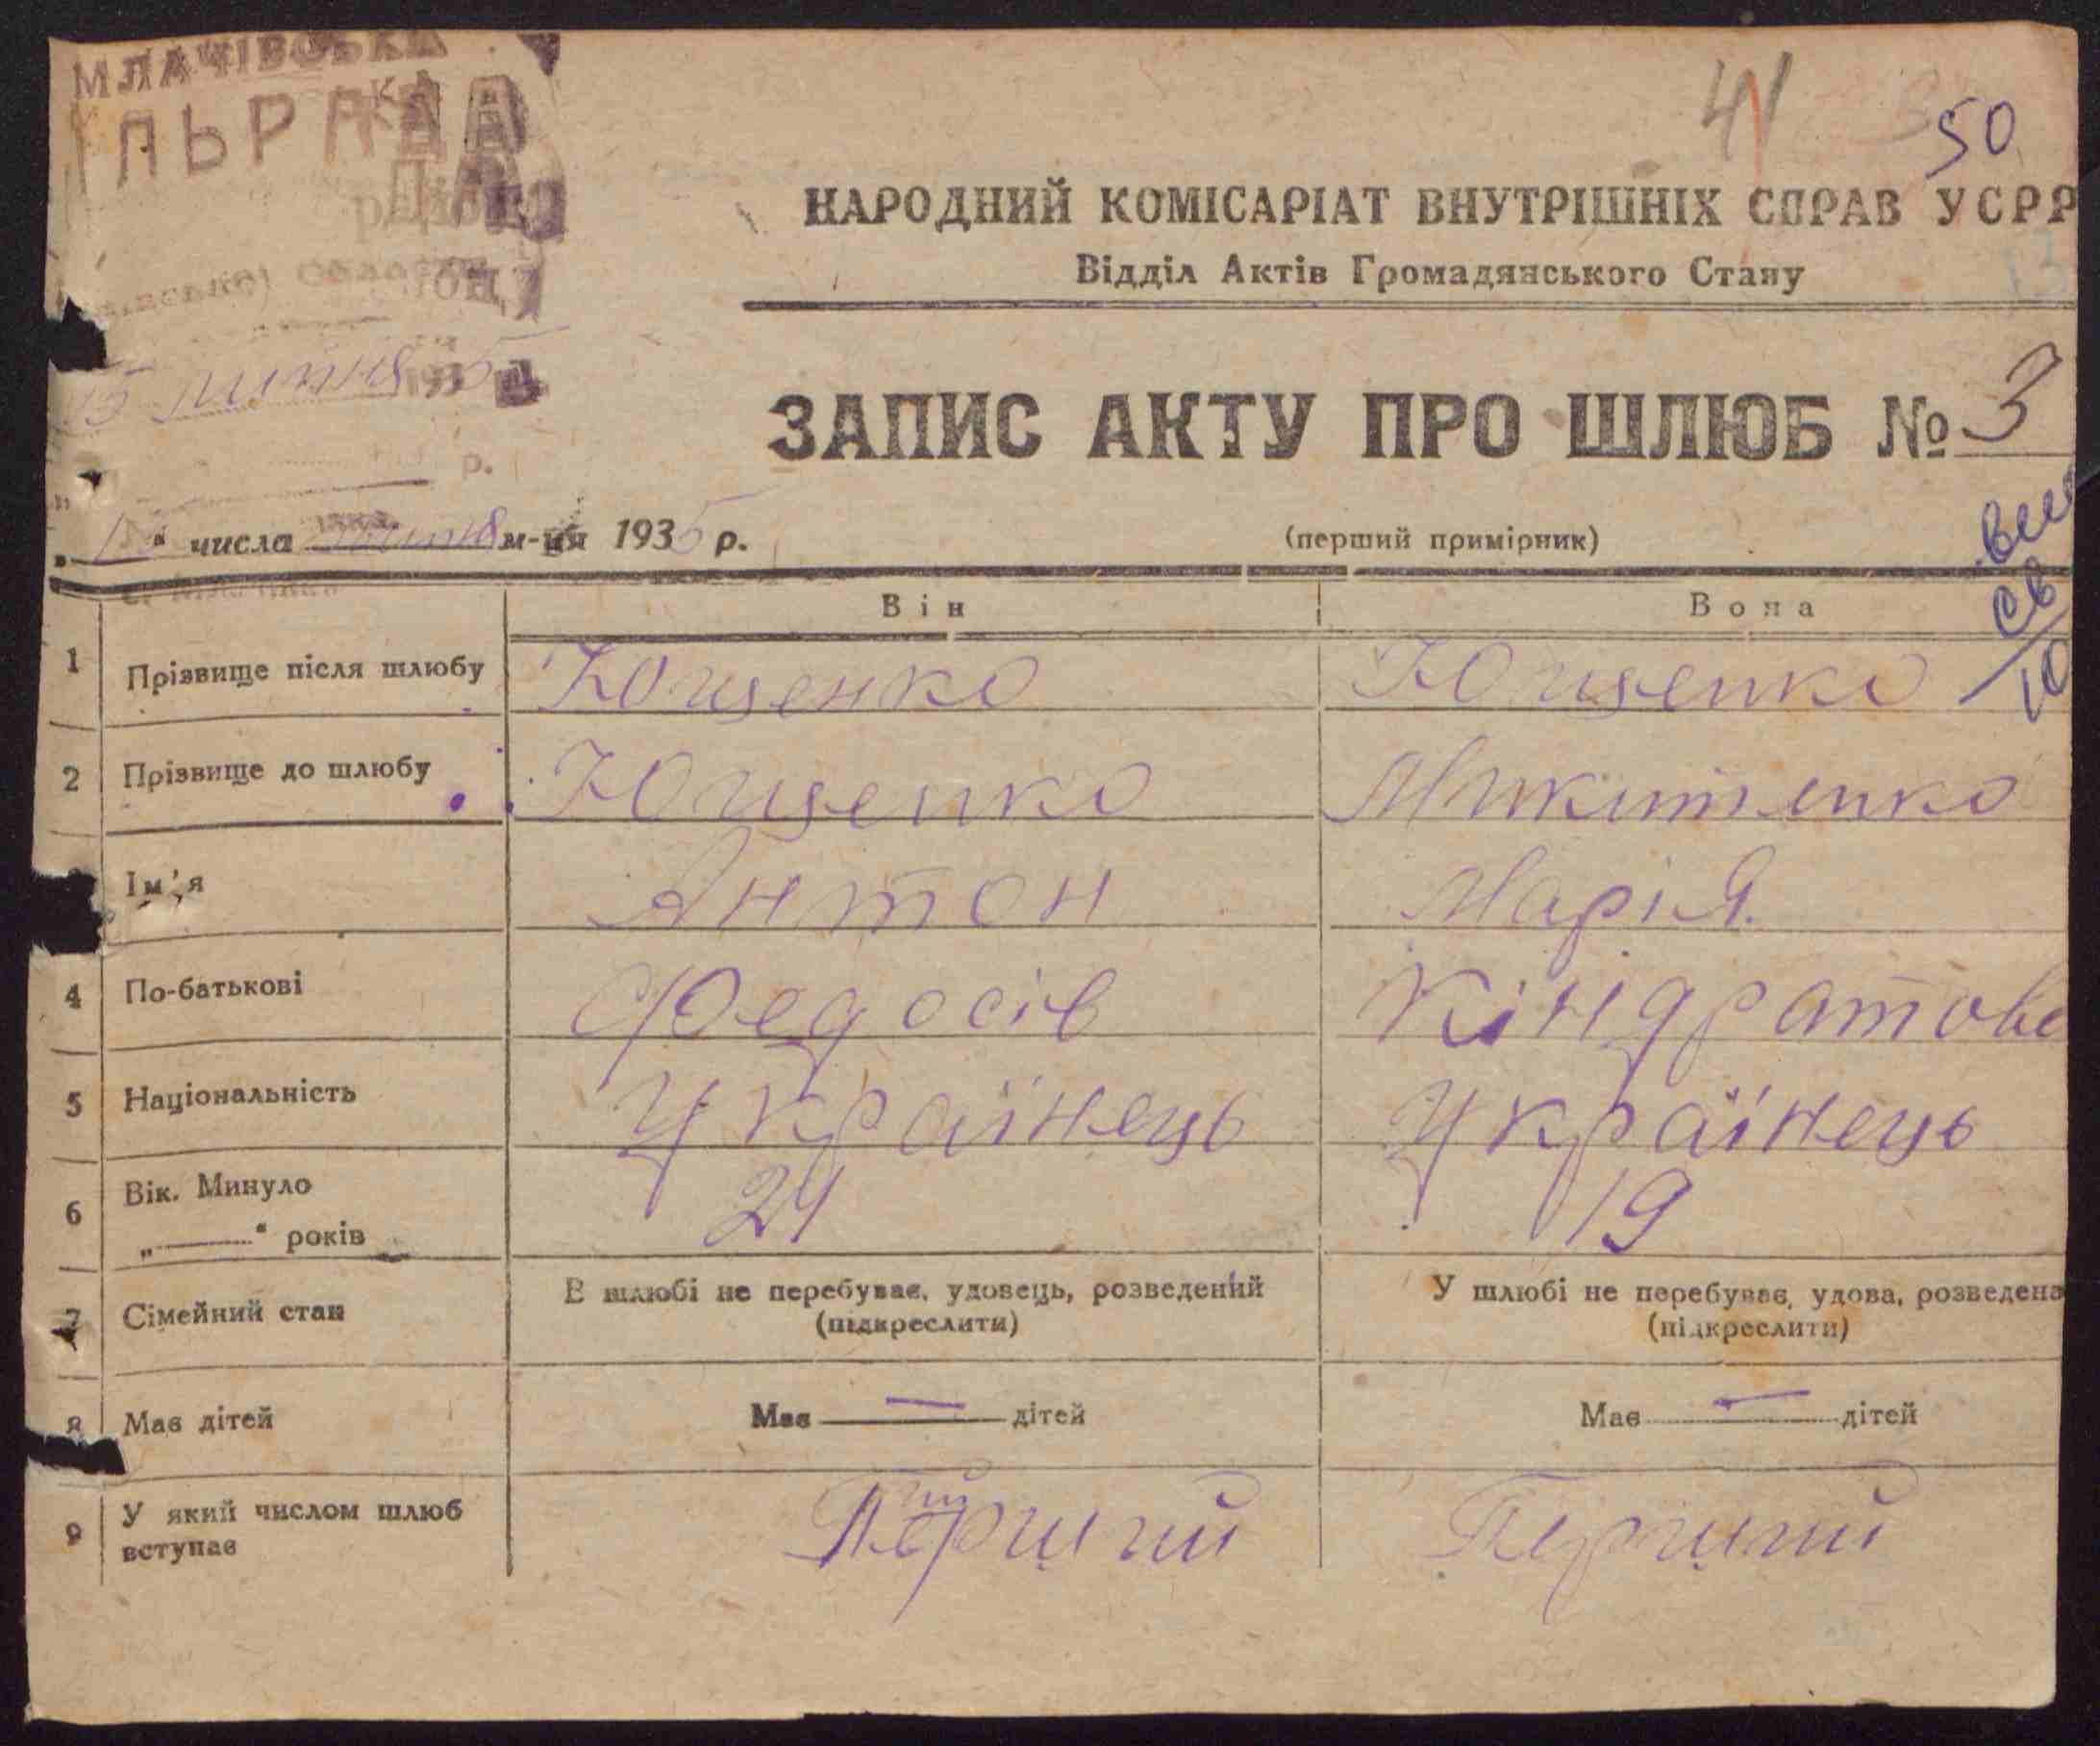 МЛАЧІВСЬКА
ІЛЬРАДА
41
50
НАРОДНИЙ КОМІСАРІАТ ВНУТРІШНІХ СПРАВ УСРР
Відділ Актів Громадянського Стану
ЗАПИС АКТУ ПРО ШЛЮБ № 3
15
193
р.
числа м-ця 1935 р.
(перший примірник)
Він Вона
1 Прізвище після шлюбу Ющенко Ющенко
2 Прізвище до шлюбу Ющенко Микитенко
Ім'я Антон Марія
4 По-батькові Федосів Кіндратове
5 Національність Українець Українець
6 Вік. Минуло
„———" років 24 19
7 Сімейний стан В шлюбі не перебуває, удовець, розведений У шлюбі не перебуває, удова, розведена
(підкреслити) (підкреслити)
8 Має дітей Має — дітей Має — дітей
9 У який числом шлюб
вступає Перший Перший